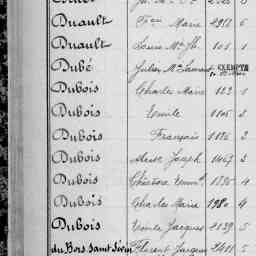 Duault Marie 4918 6
Duault Louis Mie Jh 101 1
Dubé Julien Mie Laurent EXEMPTÉ
Dubois Charles Marie 122 1
Dubois Emile 1105 2
Dubois Français 1186 2
Dubois Joseph 1467 3
Dubois 4
Dubois Charles Marie 1980 4
Dubois Emile Jacques 4139 5
du Bois Saint Sévrin Florent Jacques 2411 5